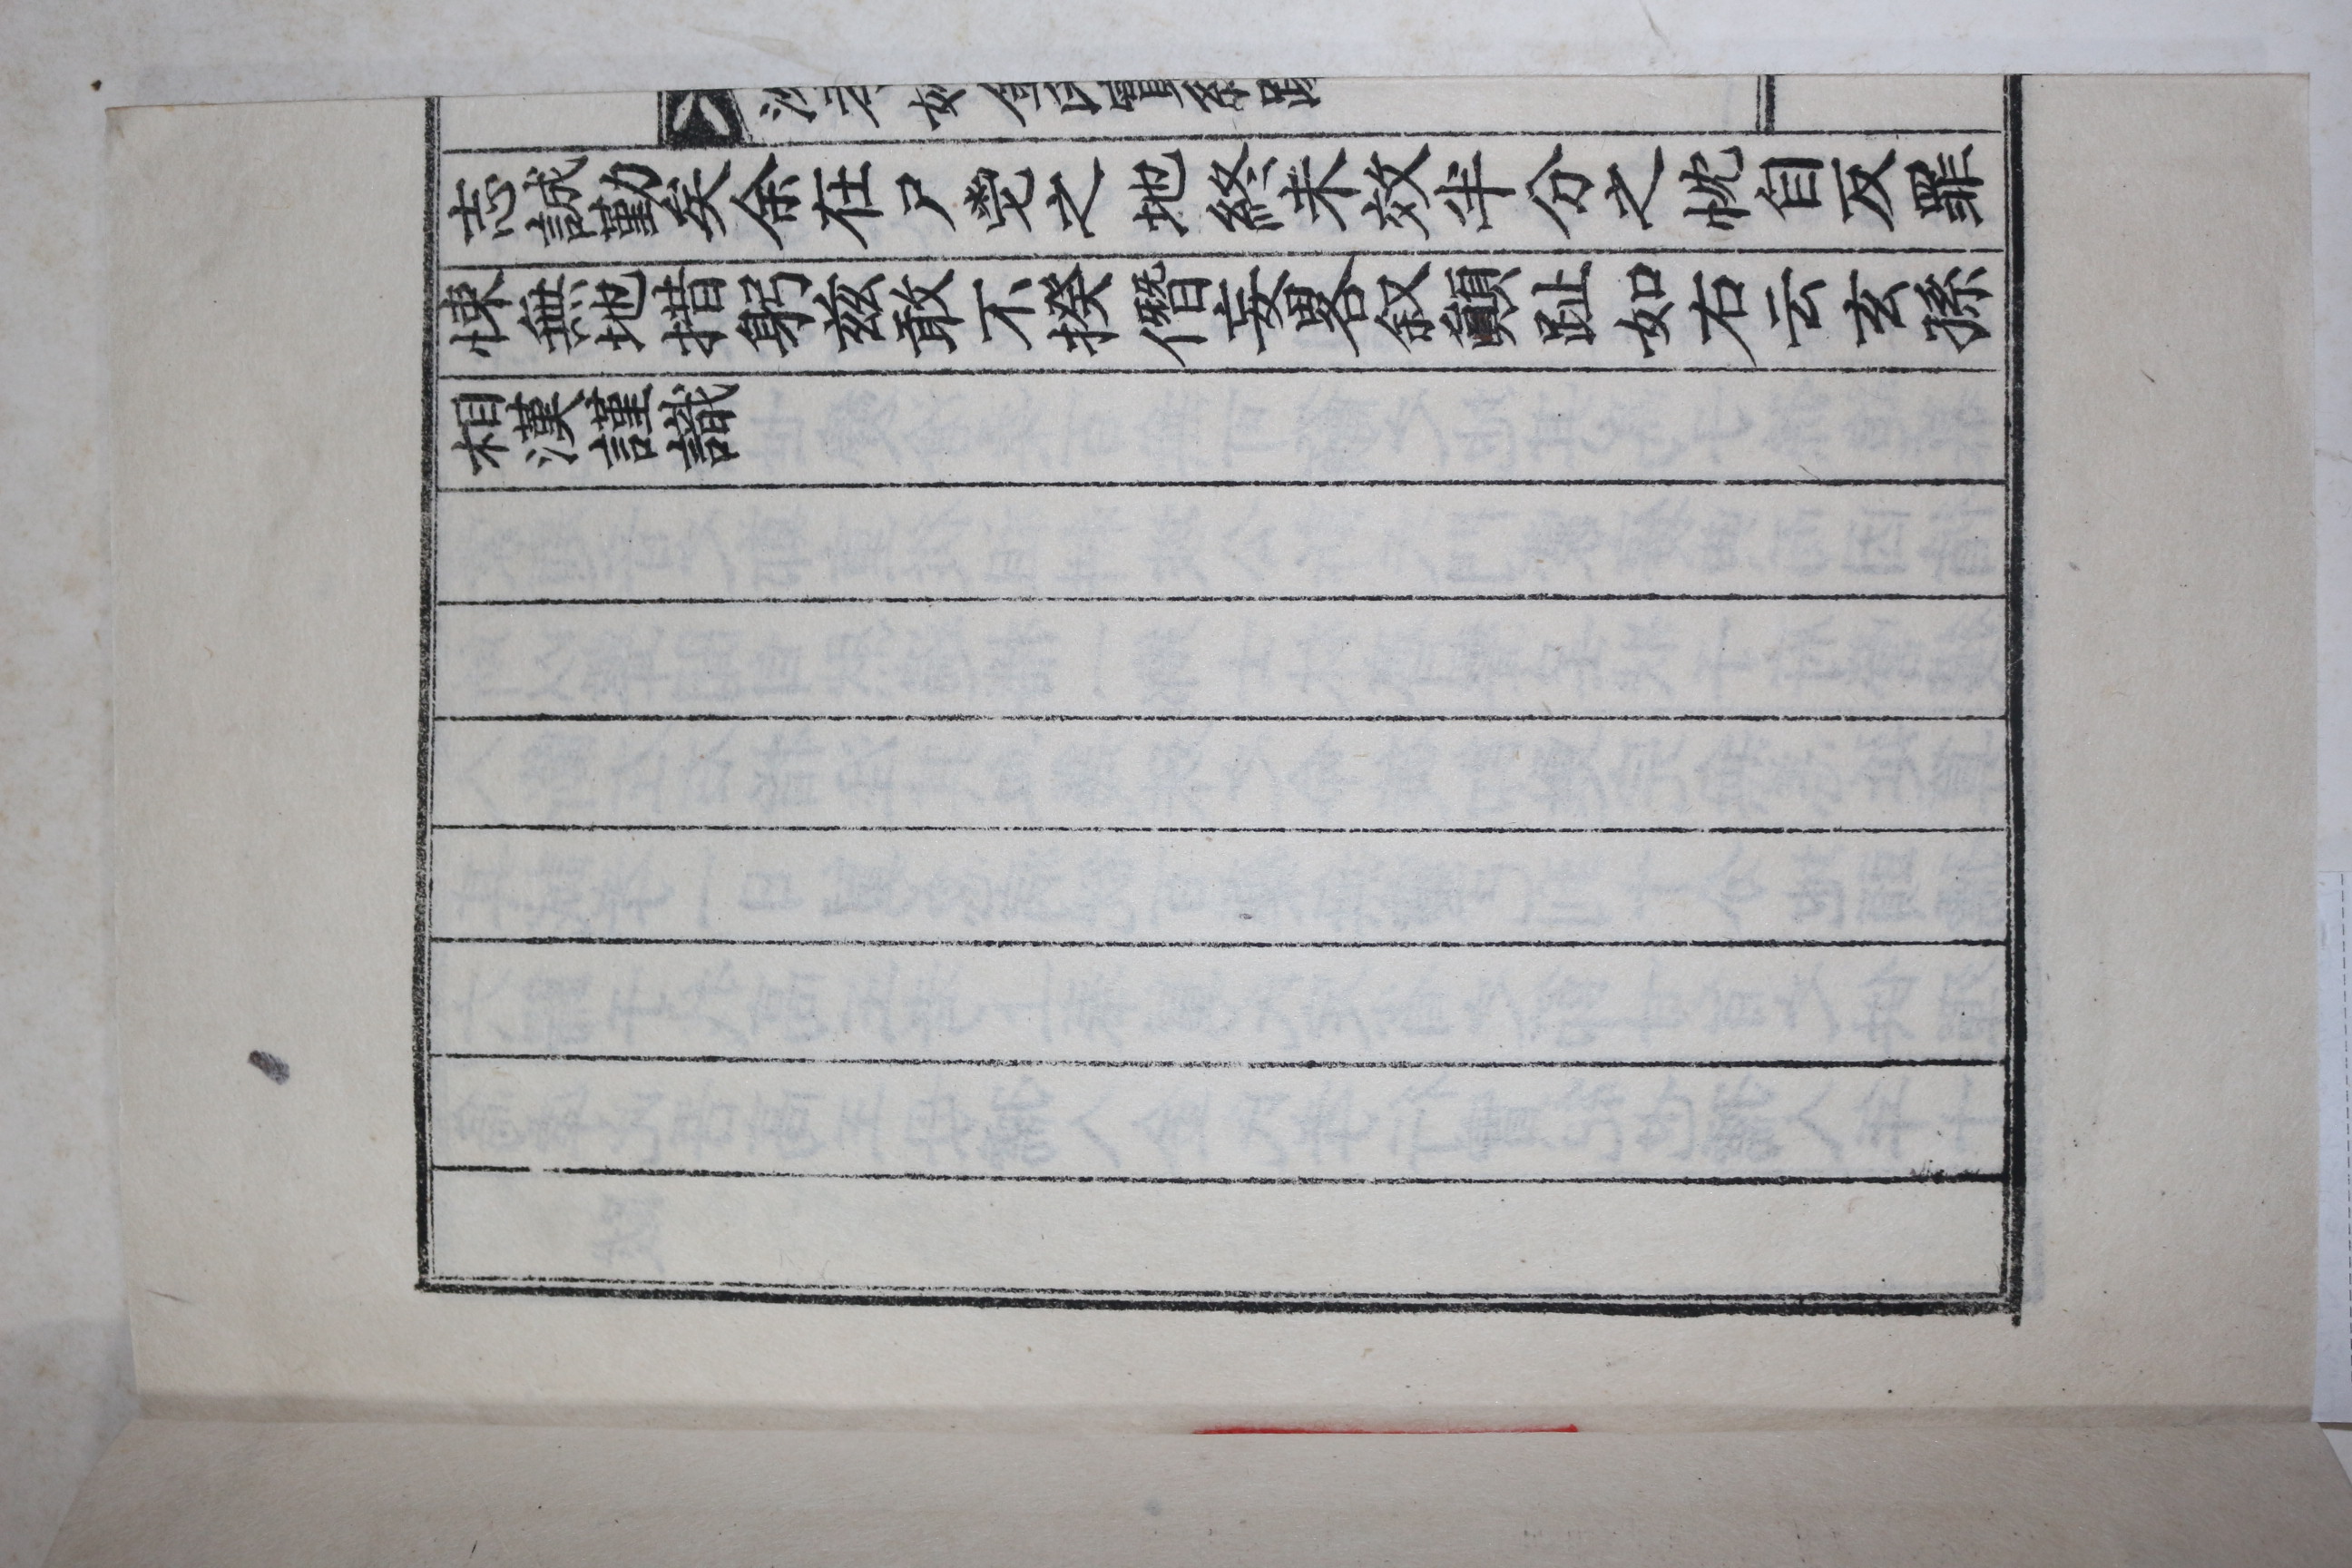 孝婦金氏實紀跋
志誠勤矣余在尸之地終未效半分之忱自反罪
悚無地措躬茲敢不揆僭妄畧叙顛趾如右云玄孫
相漢謹識